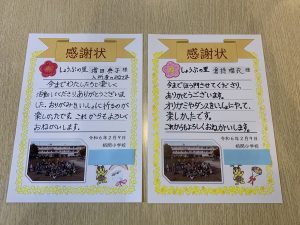 感謝状
しょうぶの里
様
今までわたしたちと楽しく
活動してくださりありがとうございま
した。おりがみやきいんしょに折るのが
楽しかったです。これからもよろしく
おねがいします。
令和6年2月9日
鶴間小学校
感謝状
しょうぶの里
様
今までほう門させてくださり、
ありがとうございます。
オリガミやダンスをいっしょにやって、
楽しかったです。
これからもよろしくおねがいします。
令和6年2月9日
鶴間小学校